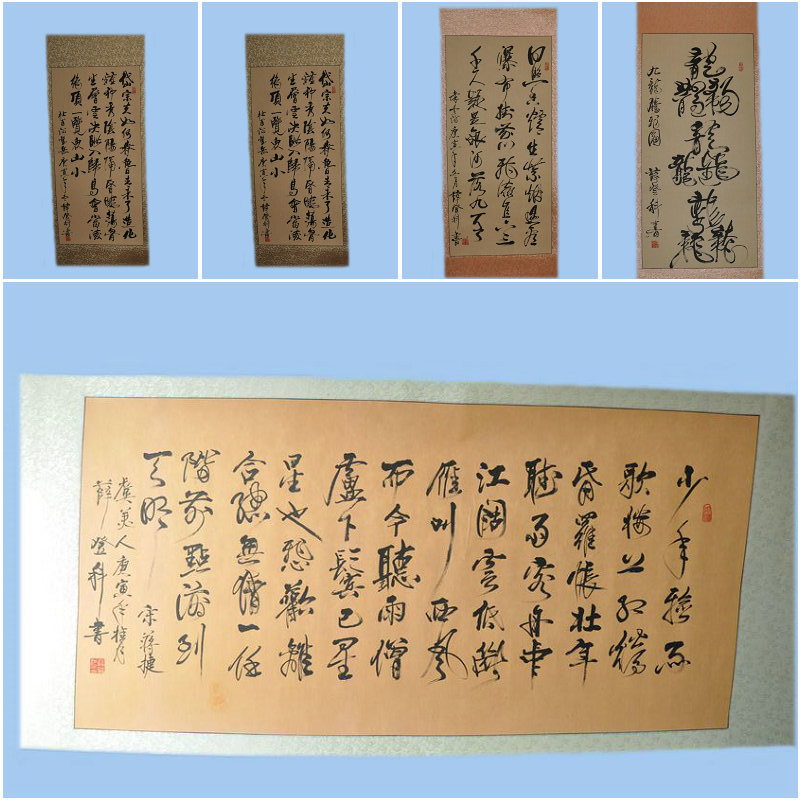 岱宗夫如何齊魯青未了造化
鍾神秀陰陽隔昏曉蕩胸
生層雲決眦入歸鳥會當凌
絕頂一覽衆山小
杜甫詩望岳庚寅年之冬薛登科書
岱宗夫如何齊魯青未了造化
鍾神秀陰陽隔昏曉蕩胸
生層雲決眦入歸鳥會當凌
絕頂一覽衆山小
杜甫詩望岳庚寅年之冬薛登科書
日照香爐生紫煙遥看
瀑布掛前川飛流直下三
千尺疑是銀河落九天
李白詩庚寅年冬月薛登科書
九龍騰飛圖
薛登科書
少年聽雨
歌樓上紅燭
昏羅帳壯年
聽雨客舟中
江闊雲低斷
雁叫西風
而今聽雨僧
廬下鬢已星
星也悲歡離
合總無情一任
階前點滴到
天明
宋蔣捷
虞美人庚寅年桂月
薛登科書